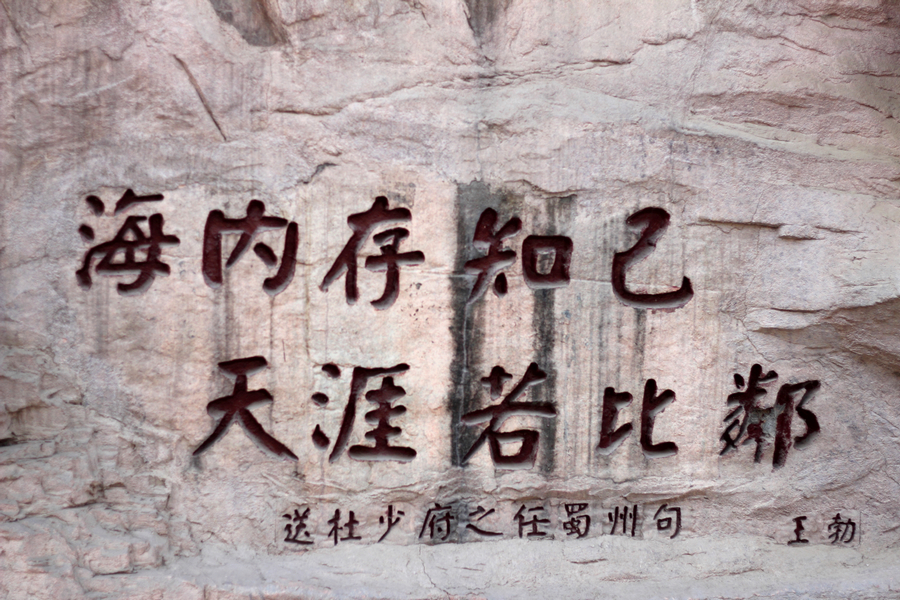 海内存知己
天涯若比鄰
送杜少府之任蜀州句 王勃